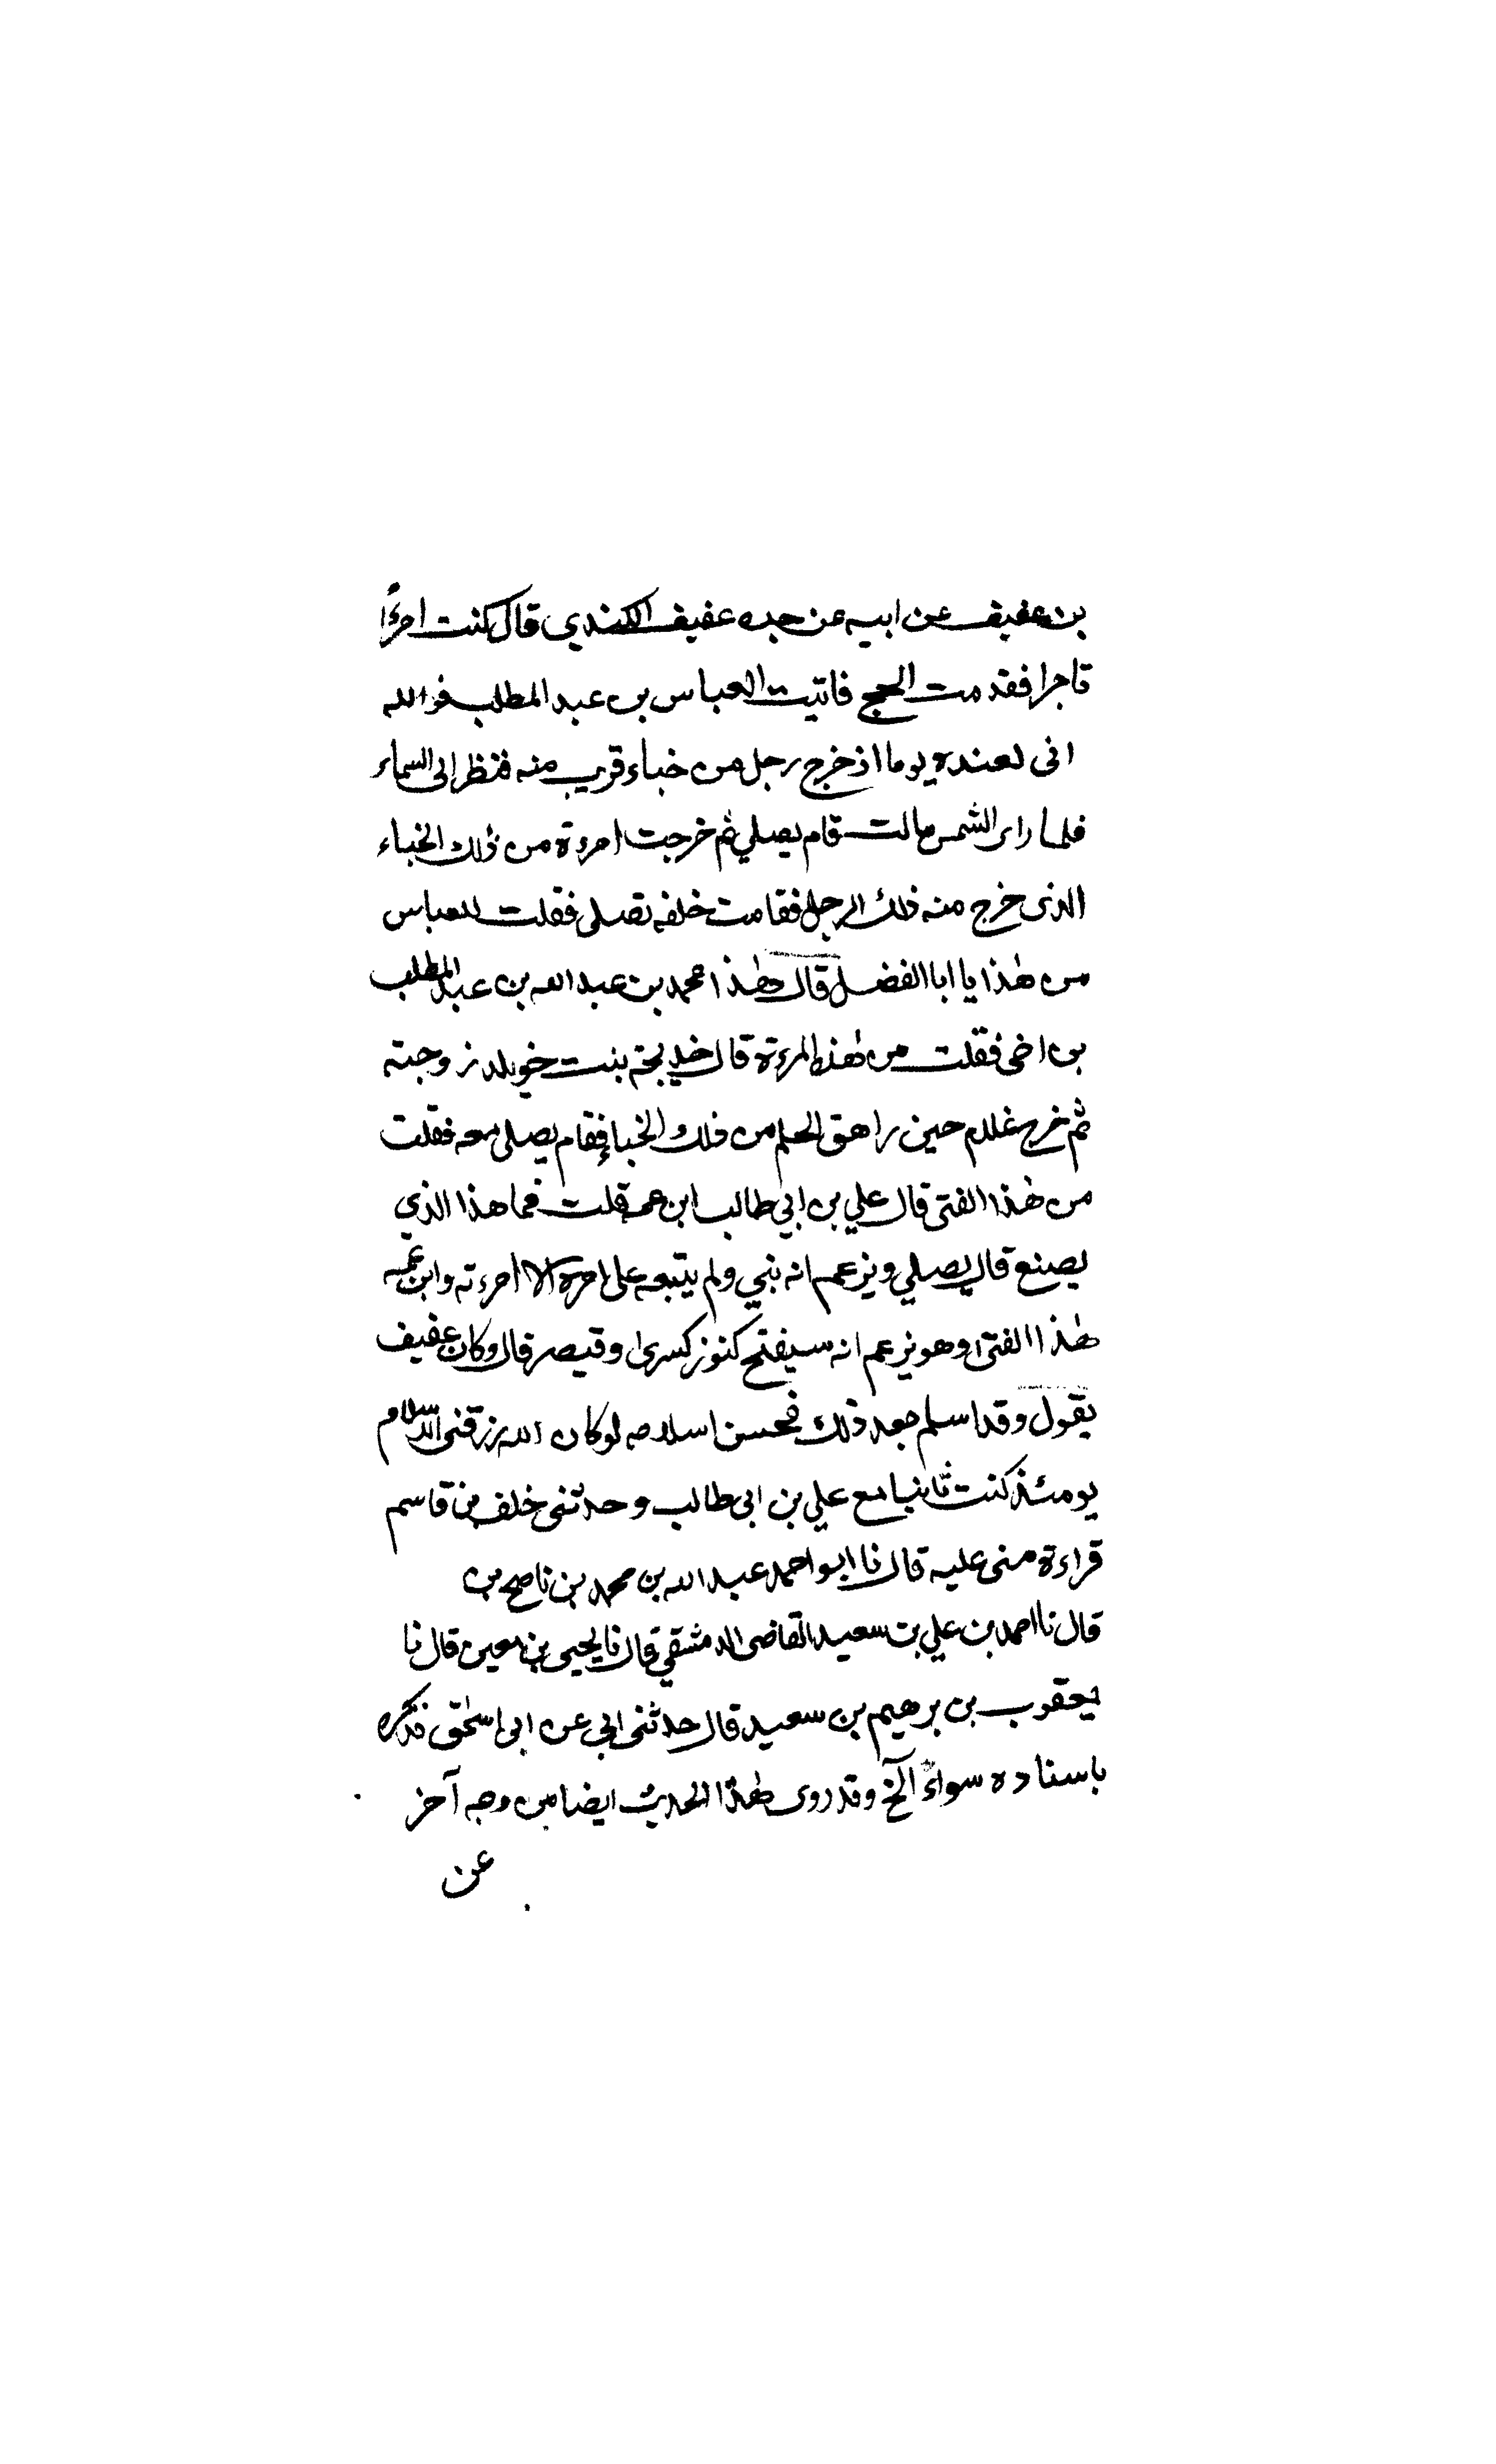 بن عفيف عن ابيه عن جده عفيف الكندي قال كنت امرءًا
تاجرا فقدمت الحج فاتيت العباس بن عبد المطلب فوالله
انى لعنده يوما اذ خرج رجل من خباء قريب منه فنظر الى السماء
فلما راى الشمس مالت قام يصلي ثم خرجت امرءة من ذلك الخباء
الذى خرج منه ذلك الرجل فقامت خلفه تصلى فقلت للعباس
من هٰذا يا ابا الفضل قال هٰذا محمد بن عبد الله بن عبد المطلب
بن اخى فقلت من هٰذه المرءة قال خديجة بنت خويلد زوجته
ثم خرج غلام حين راهق الحلم من ذلك الخباء فقام يصلى معه فقلت
من هٰذا الفتى قال علي بن ابي طالب ابن عمه قلت فما هذا الذي
يصنع قال يصلي ويزعم انه نبي ولم يتبعه على امره الا امرءته وابن عمه
هٰذا الفتى وهو يزعم انه سيفتح كنوز كسرى وقيصر قال وكان عفيف
يقول وقد اسلم بعد ذلك فحسن اسلامه لو كان الله رزقنى الاسلام
يومئذ كنت ثانيا مع علي بن ابى طالب وحدثنى خلف بن قاسم
قراءة منى عليه قال نا ابو احمد عبد الله بن محمد بن ناصح بن
قال نا احمد بن علي بن سعيد القاضى الدمشقي قال نا يحيى بن معين قال نا
يعقوب بن برهيم بن سعيد قال حدثنى ابي عن ابى اسحٰق فذكره
باسناده سواءً الخ وقد روى هٰذا الحديث ايضا من وجه آخر
عن